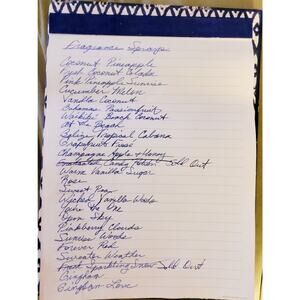 Fragrance Sprays
Coconut Pineapple
Fresh Coconut Colada
Pink Pineapple Sunrise
Cucumber Melon
Vanilla Coconut
Bahamas Passionfruit
Waikiki Beach Coconut
At the Beach
Belize Tropical Cabana
Grapefruit Rosé
Champagne Apple & Honey
Sold Out
Warm Vanilla Sugar
Rose
Sweet Pea
Wicked Vanilla Woods
You're the One
Pink Berry Clouds
Sunrise Woods
Forever Red
Sweater Weather
Fresh Sparkling Snow Sold Out
Gingham
Gingham Love